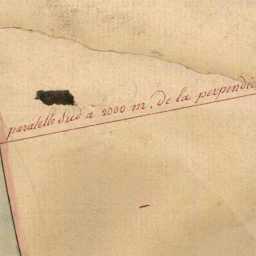 paralelle Sud a 2000 m. de la perpendic